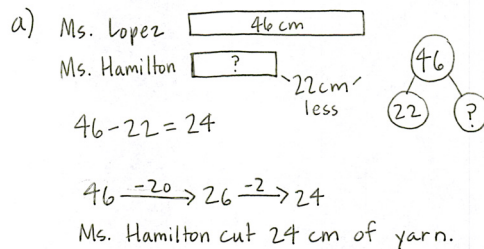 a) Ms. Lopez 46 cm
Ms. Hamilton ?
22cm
less
46
22 ?
46-22 = 24
46 -20→ 26 -2→ 24
Ms. Hamilton cut 24 cm of yarn.